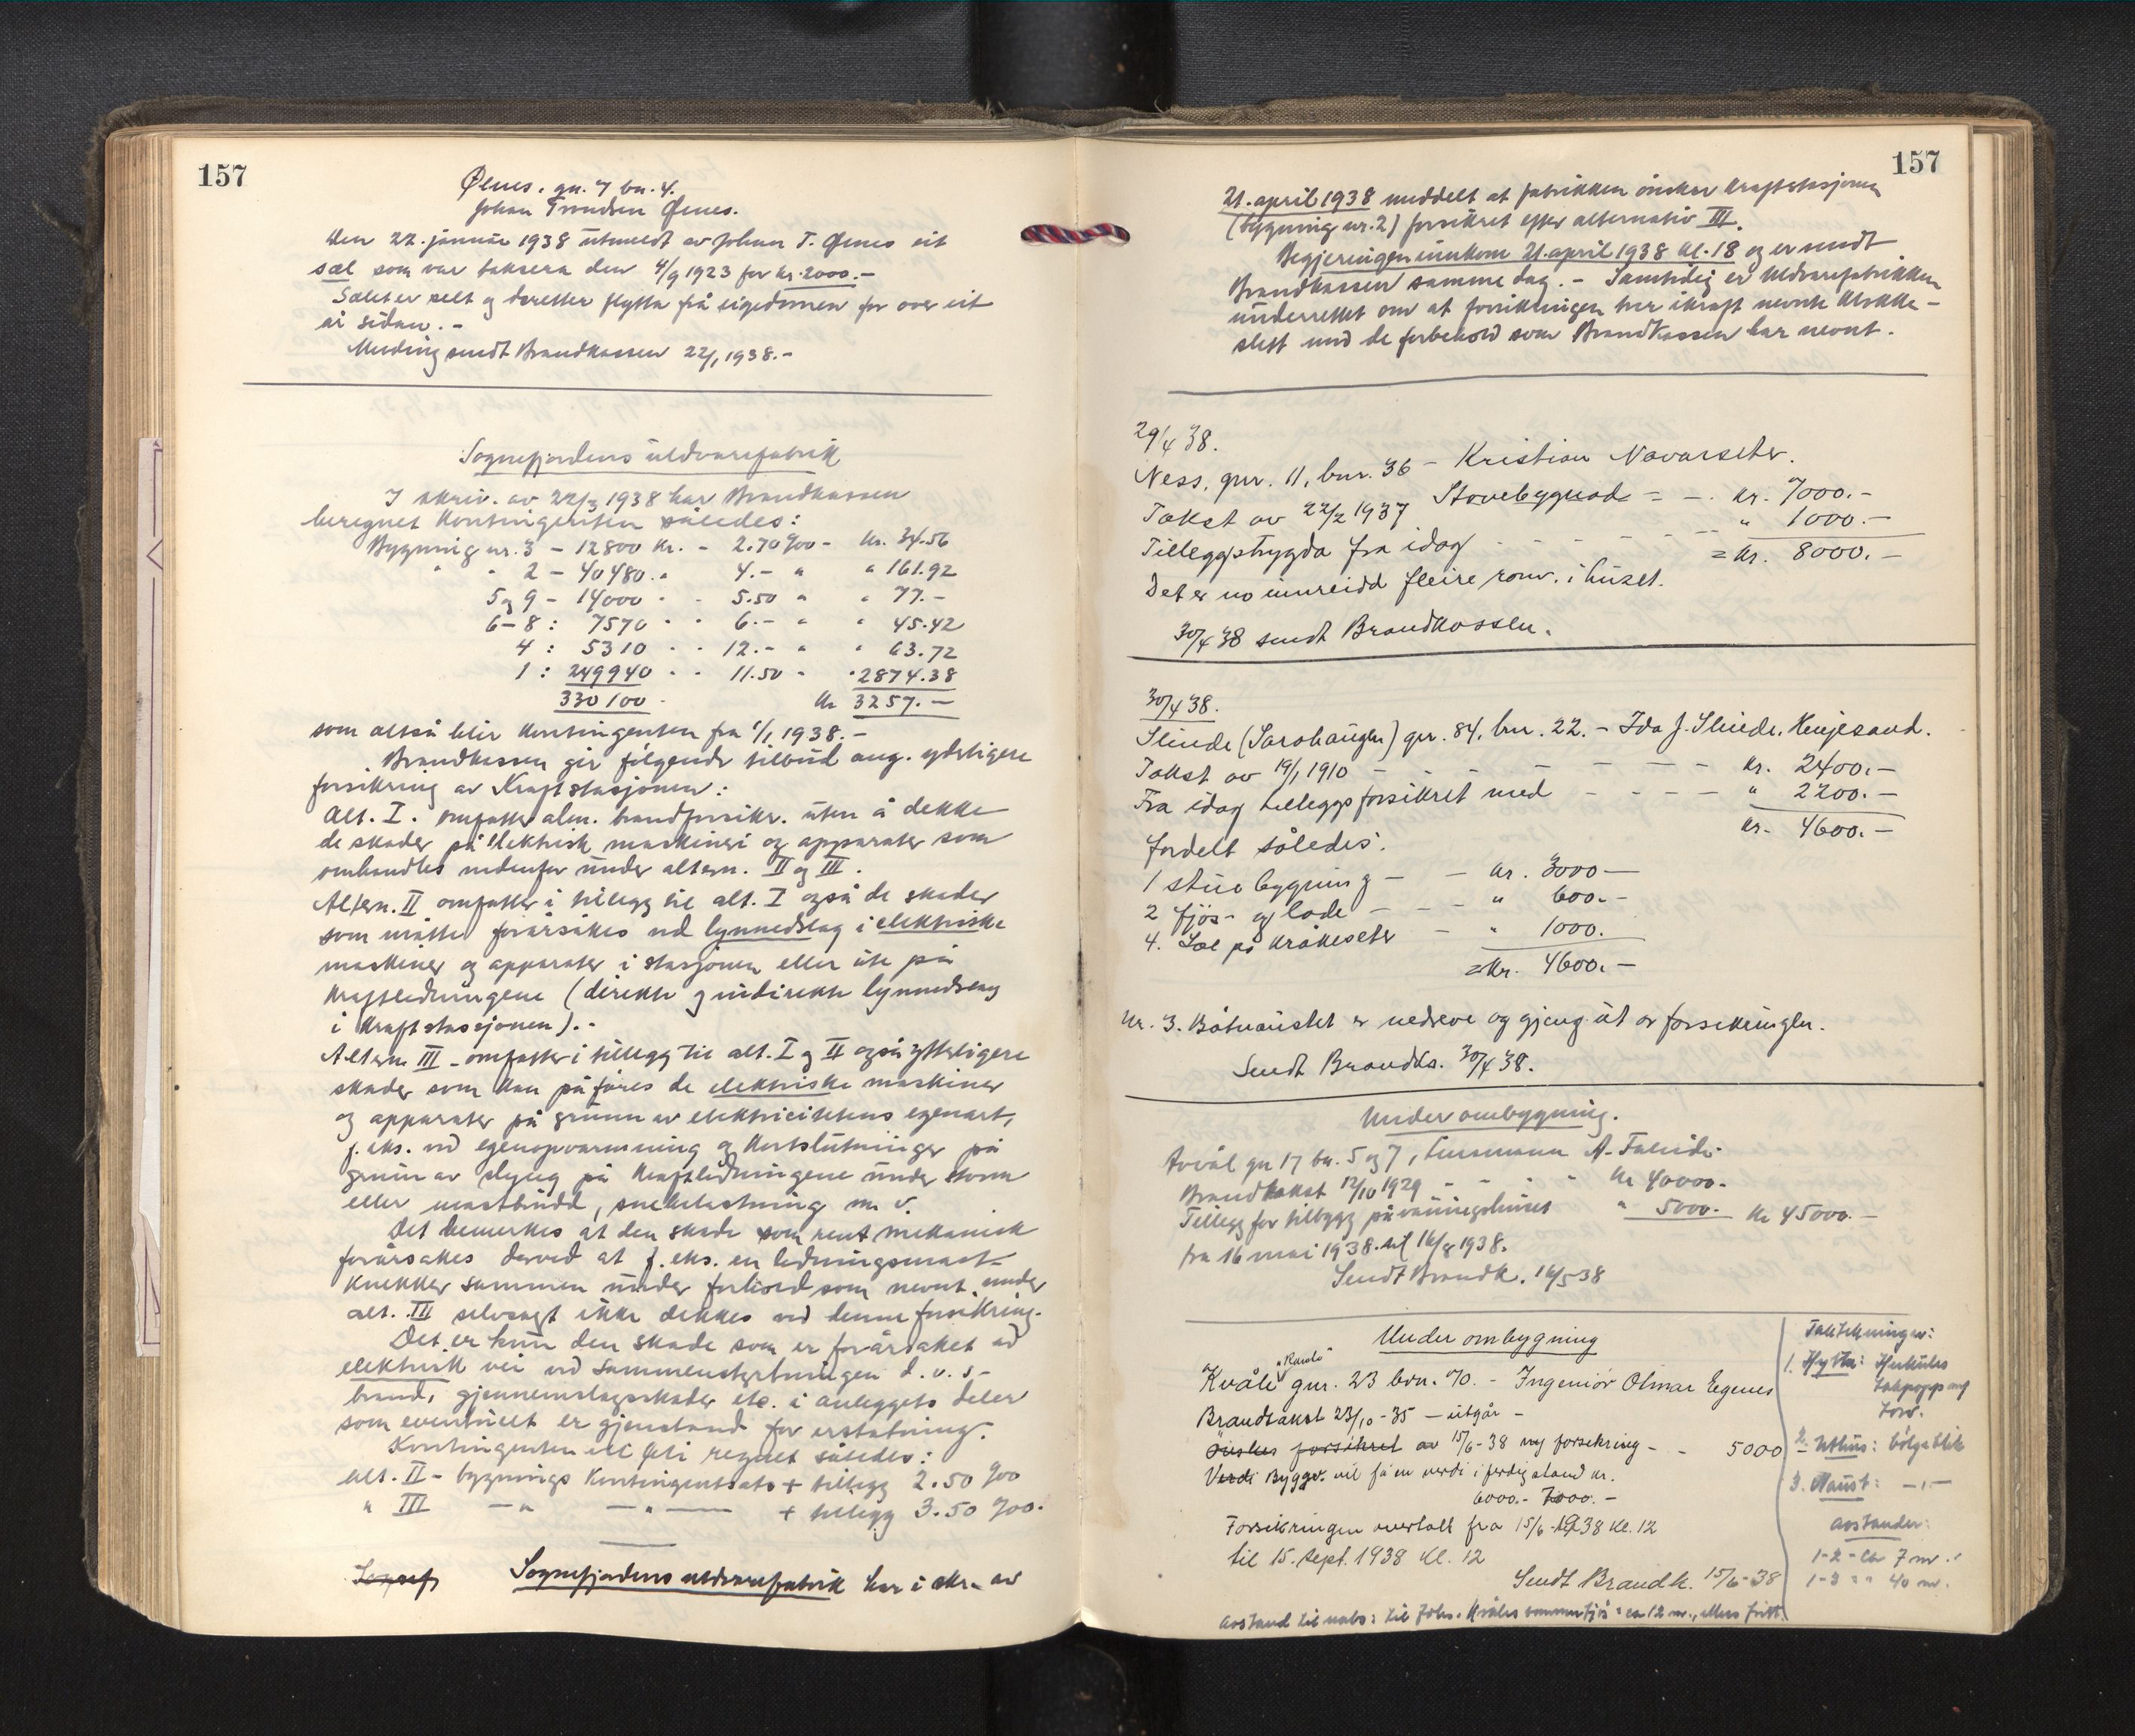 157
Ølnes. gn. 7 bn. 4.
Johan Trondsen Ølnes.
Den 22. januar 1938 utmeldt av Johan T. Ølnes eit
sæl som var taksera den 4/9 1923 for kr. 2000.-
Sælet er selt og deretter flytta frå eigedomen for over eit
år sidan. -
Melding sendt Brandkassen 22/1 1938. -
Sognefjordens uldvarefabrik
I skriv. av 22/3 1938 har Brandkassen
beregnet Kontingenten således:
Bygning nr. 3 - 12800 Kr. - 2.70 ‰ - Kr. 34.56
" " 2 - 40480. " 4.- " " 161.92
5 og 9 - 14000 - - 5.50 " " 77.-
6-8 : 7570 - - 6.- " " 45.42
4 : 5310 - - 12.- " " 63.72
1 : 249940 - - 11.50 - " 2874.38
330100 - Kr 3257.-
som altså blir Kontingenten fra 1/1 1938. -
Brandkassen gir følgende tilbud ang. yderligere
forsikring av Kraftstasjonen:
Alt. I. omfatter alm. brandforsikr. uten å dekke
de skader på elektrisk maskineri og apparater som
omhandles nedenfor under altern. II og III.
Altern. II omfatter i tillegg til alt. I også de skader
som måtte forårsakes ved lynnedslag i elektriske
maskiner og apparater i stasjonen eller ute på
kraftledningene (direkte og indirekte lynnedslag
i Kraftstasjonen). -
Altern III - omfatter i tillegg til alt. I og II også ytterligere
skader som kan påføres de elektriske maskiner
og apparater på grunn av elektricitetens egenart,
f. eks. ved egenopvarmning og Kortslutninger på
grunn av slyng på Kraftledningene under storm
eller mastbrudd, snebelastning m. v.
Det bemerkes at den skade som rent mekanisk
forårsakes derved at f. eks. en ledningsmast
knekker sammen under forhold som nevnt under
alt. III selvsagt ikke dekkes ved denne forsikring.
Det er kun den skade som er forårsaket ad
elektrisk vei ved sammenstyrtningen d. v. s.
brand, gjennemslagsskader etc. i anleggets deler
som eventuelt er gjenstand for erstatning.
Kontingenten vil bli regnet således:
Alt. II - bygnings Kontingentsats + tillegg 2.50 ‰
" III - " - " - + tillegg 3.50 ‰.
Sognefj Sognefjordens uldvarefabrik har i skr. av
157
21. april 1938 meddelt at fabrikken ønsker Kraftstasjonen
(bygning nr. 2) forsikret efter alternativ III.
Begjeringen innkom 21. april 1938 kl. 18 og er sendt
Brandkassen samme dag. - Samtidig er Uldvarefabrikken
underrettet om at forsikringen trer ikraft nevnte klokke-
slett med de forbehold som Brandkassen har nevnt.
29/4 38.
Ness, gnr. 11, bnr. 36 - Kristian Navarseter.
Takst av 22/2 1937 Stovebygnad - - kr. 7000.-
Tilleggstrygda fra idag - - - - " 1000.-
= kr. 8000.-
Det er no innreidd fleire romv. i huset.
30/4 38 sendt Brandkassen.
30/4 38.
Slinde (Sarahaugen) gnr. 84, bnr. 22. - Ida J. Slinde, Henjesand.
Takst av 19/1 1910 - - - - - kr. 2400.-
Fra idag tilleggsforsikret med - - - - " 2200.-
kr. 4600.-
fordelt således:
1 stuebygning - - kr. 3000 -
2 fjøs- og lade - - - " 600.-
4. Sæl på Kråkeseter - " 1000.
= kr. 4600.-
Nr. 3. Båtnaustet er nedreve og gjeng ut av forsikringen.
Sendt Brandks. 30/4 38.
Under ombygning.
gn 17 bn. 5 og 7, A.
Brandtakst 12/10 1929 - - - kr 40000.-
Tillegg for tilbygg på våningshuset " 5000.- kr 45000.-
fra 16 mai 1938 til 16/8 1938.
Sendt Brandk. 16/5 38
Under ombygning
Kvåle gnr. 23 bnr. 70. - Ingeniør Olmar Eggenes
Brandtakst 23/10 - 35 - utgår -
Ønskes forsikret av 15/6-38 ny forsekring - - 5000
Verdi Byggv. vil få en verdi i ferdig stand kr.
6000.- 7000.-
Forsikringen overtatt fra 15/6-1938 kl. 12
til 15. Sept. 1938 kl. 12
Sendt Brandk. 15/6-38
Avstand til nabo: til Johs. Kvåles sommerfjøs = ca 12 m., ellers fritt.
Taktekninger:
1. Hytta: Herkules
takpapp
torv.
2. Uthus: bølgeblik
3. Naust: -"-
Avstander:
1-2 - ca 7 m.
1-3 " " 40 m.